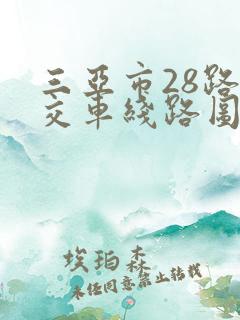 三亚市28路
交车线路图
埃珀森
未经同意禁止转载